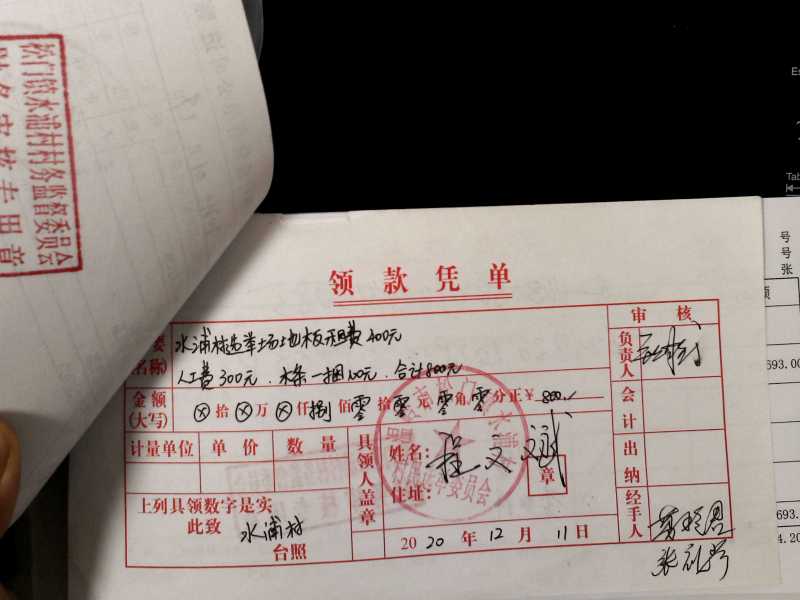 松门镇水浦村村务监督委员会
领款凭单
审核
水浦村选举场地板租费400元
(名称)
人工费300元、木条一捆100元、合计800元
负责人
金额(大写) ⊗拾⊗万⊗仟捌佰零拾零元零角零分正¥800./
会计
计量单位 单价 数量
具领人盖章
姓名:程
住址:
章
出纳
上列具领数字是实
此致
水浦村
台照
2020年12月11日
经手人
号
号
张
693.00
693.
4.20